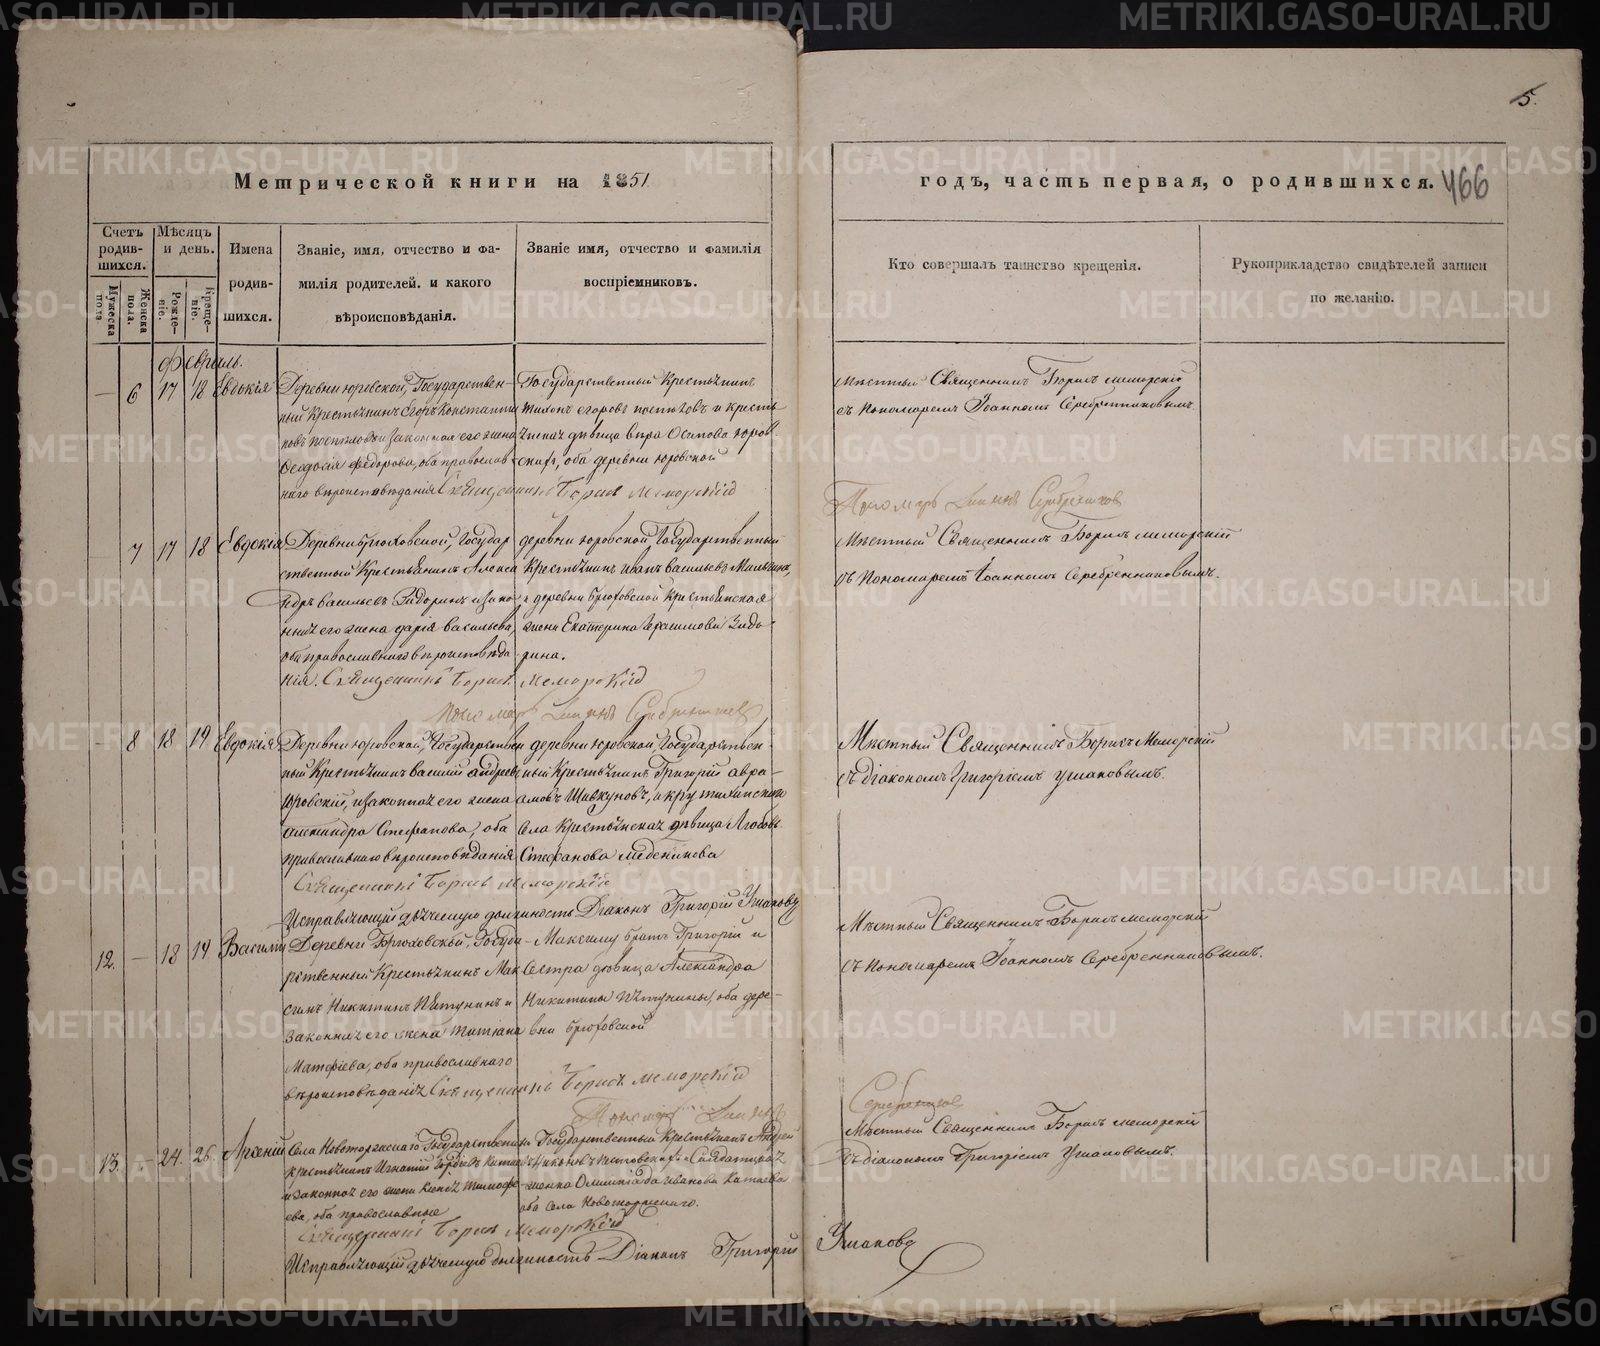 5.
Метрической книги на 1851
годъ, часть первая, о родившихся. 466
Счетъ родившихся.
Мужеска пола
Женска пола.
Мѣсяцъ и день.
Рожденіе.
Крещеніе.
Имена родившихся.
Званіе, имя, отчество и фамилія родителей. и какого вѣроисповѣданія.
Званіе имя, отчество и фамилія воспріемниковъ.
Кто совершалъ таинство крещенія.
Рукоприкладство свидѣтелей записи по желанію.
Февраль.
— 6 17 18 Евдокія
Деревни юровской, Государствен-
ный Крестьянинъ Егоръ Констант
новъ и законная его жена
Феодосія Федорова, оба православ
наго вѣроисповѣданія
Государственный Крестьянинъ
Тихонъ егоровъ и кресть
янская дѣвица вѣра Осипова юров
ская, оба деревни юровской
Священникъ Борисъ Меморскій
Мѣстный Священникъ Борисъ меморскій
съ Пономаремъ Іоанномъ Серебренниковымъ
Пономарь Іоаннъ Серебренниковъ
7 17 18 Евдокія
Деревни брюховской, Государ
ственный Крестьянинъ Алекса
ндръ васильевъ и зако
нная его жена дарія васильева,
оба православнаго вѣроисповѣда
нія. Священникъ Борисъ Меморскій
деревни юровской Государственный
Крестьянинъ иванъ васильевъ
и деревни брюховской Крестьянская
жена Екатерина Герасимова Зидо-
рина.
Мѣстный Священникъ Борисъ меморскій
съ Пономаремъ Іоанномъ Серебренниковымъ.
Пономарь Іоаннъ Серебренниковъ
— 8 18 19 Евдокія
Деревни юровской, Государствен
ный Крестьянинъ Василій андреевъ
Юровскій, и законная его жена
александра Стефанова, оба
православнаго вѣроисповѣданія
деревни юровской, Государствен-
ный Крестьянинъ Григорій авра-
амовъ Шивкуновъ, и крутихинскаго
села Крестьянская дѣвица Любовь
Стефанова Меденикова
Священникъ Борисъ Меморскій
Мѣстный Священникъ Борисъ Меморскій
съ діакономъ Григоріемъ ушаковымъ.
Исправляющій дьяческую должность Діаконъ Григорій Ушаковъ
12. — 18 19 Василій
Деревни Брюховской, Госуда-
рственный Крестьянинъ Мак
симъ Никитинъ Пѣтунинъ и
законная его жена татіана
Матфіева, оба православнаго
вѣроисповѣданія Священникъ Борисъ меморскій
Максиму братъ Григорій и
Сестра дѣвица Александра
Никитины Пѣтунины, оба дере-
вни брюховской
Мѣстный Священникъ Борисъ меморскій
съ пономаремъ Іоанномъ Серебренниковымъ.
Пономарь Іоаннъ Серебренниковъ
13. — 24. 26. Арсеній
Села Новоторжскаго Государственный
крестьянинъ Игнатій
и законная его жена Ксенія Тимофе-
ева, оба православные
Государственный Крестьянинъ Андрей
Солдатская
женка Олимпіада Иванова Катаева
оба села Новоторжскаго.
Священникъ Борисъ Меморскій
Мѣстный Священникъ Борисъ меморскій
съ діакономъ Григоріемъ Ушаковымъ.
Исправляющій дьяческую должность Діаконъ Григорій Ушаковъ